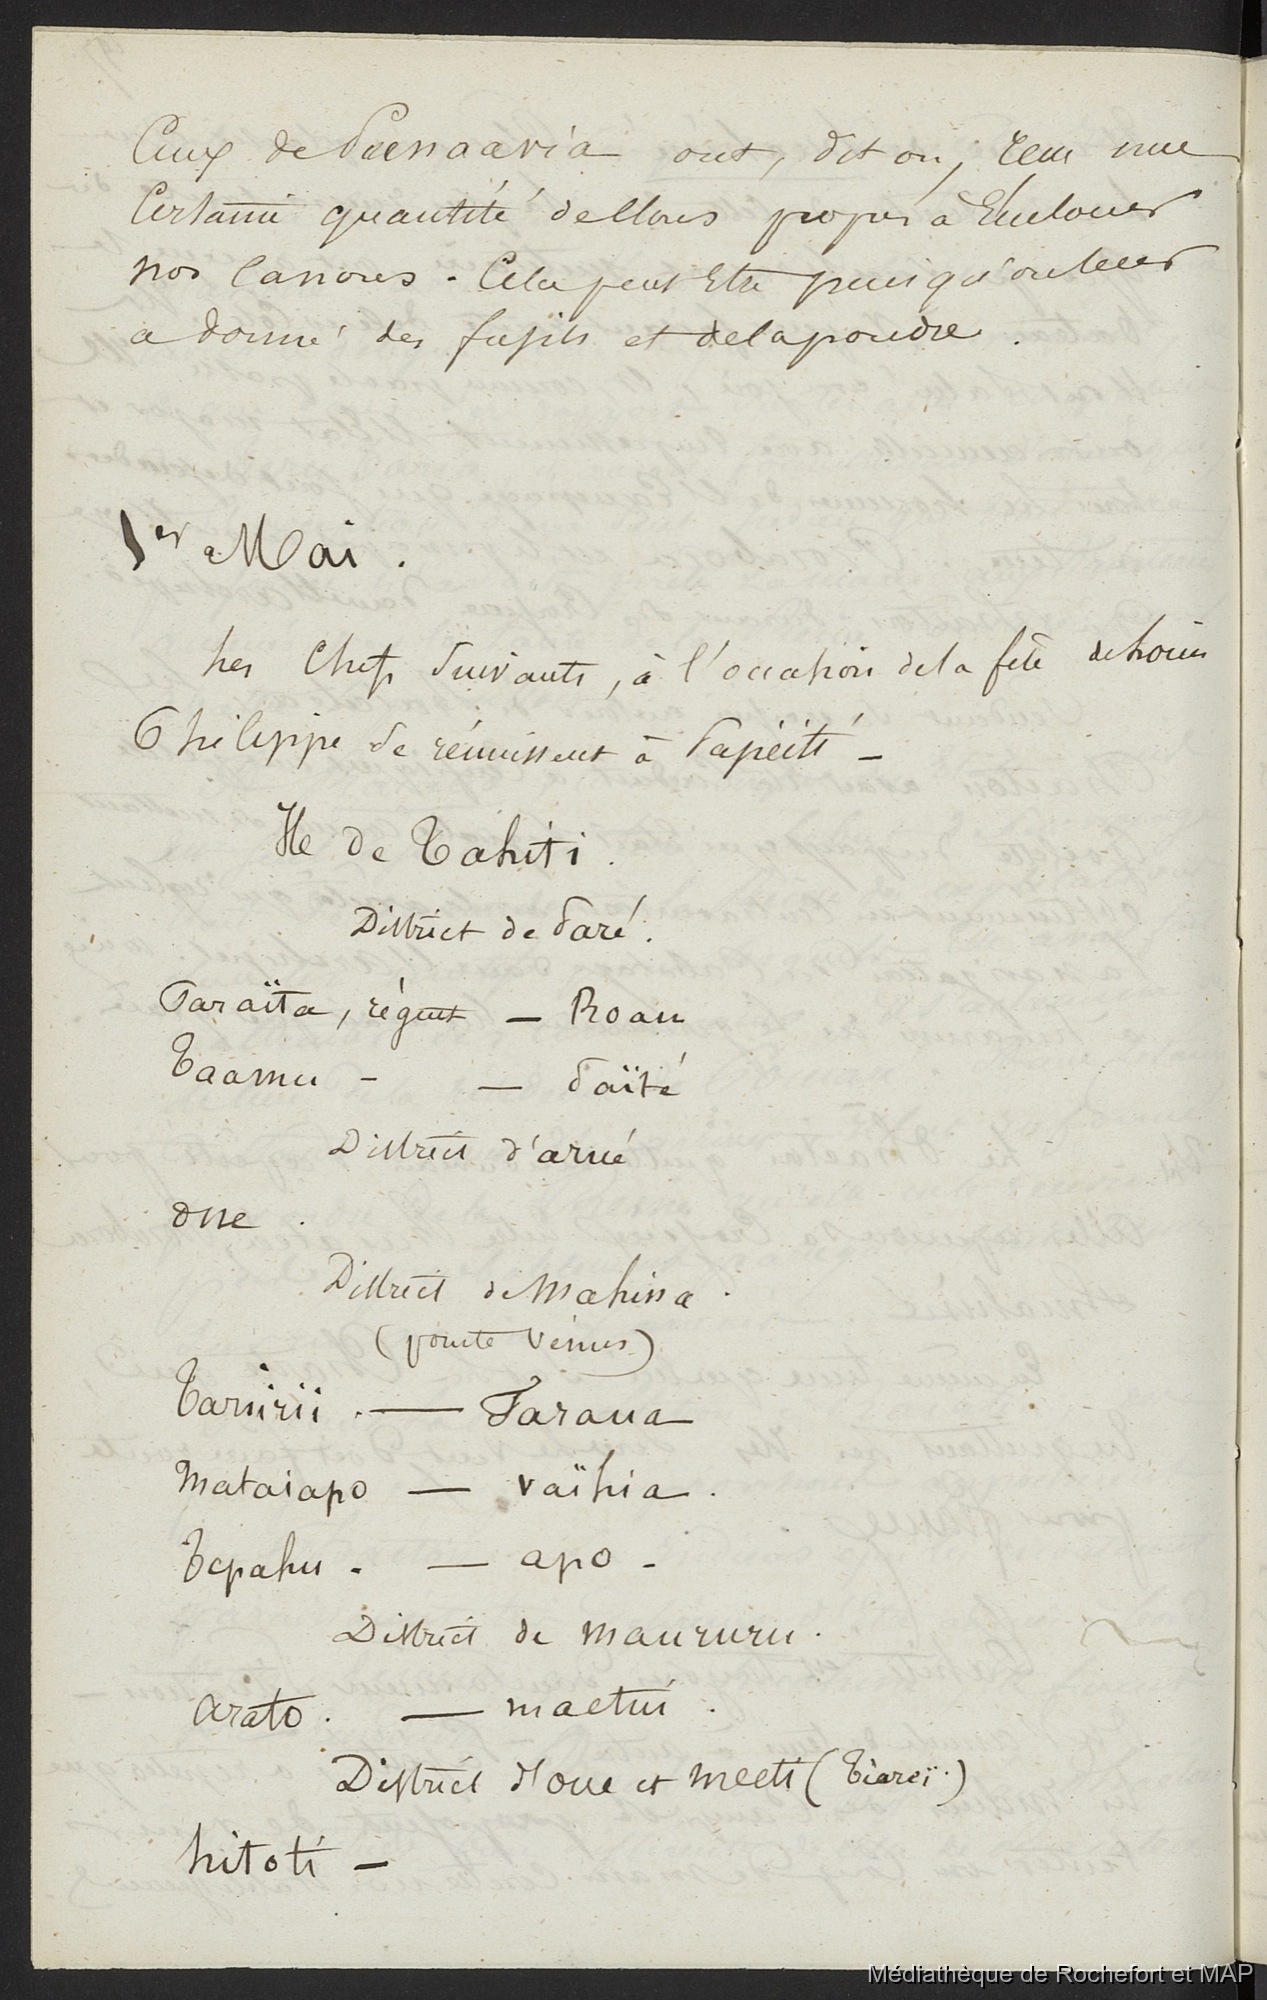 Ceux de Punaavia ont, dit on, reçu une
Certaine quantité de clous propres à Enclouer
nos canons. Cela peut Etre puisqu'on leur
a donné des fusils et de la poudre.
1er Mai.
Les Chefs Suivants, à l'occasion de la fête de Louis
Philippe se réunissent à Papéité –
Ile de Tahiti.
District de Paré.
Paraïta, régent — Roau
Taamu - — Païté
District d'arué
District de Mahina.
(pointe Vénus)
Tariirii. — Faraua
Mataiapo — Vaïhia.
Tepahu. — apo -
District de Maururu.
arato. — maetui.
District d'oue et meeti (Tiareï.)
hitoti —
Médiathèque de Rochefort et MAP